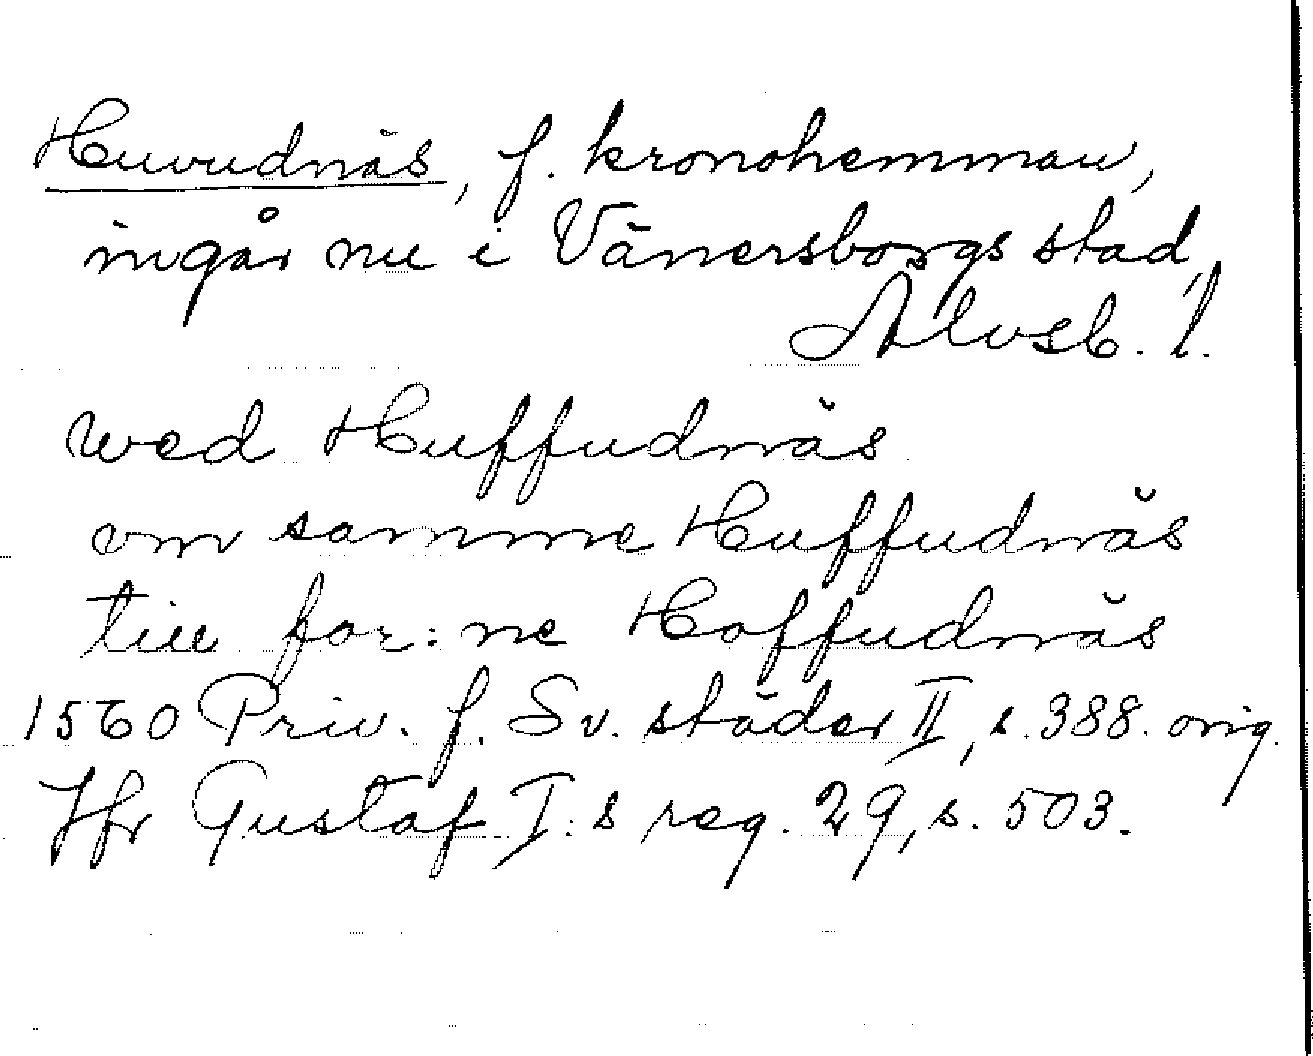 Huvudnäs, f. kronohemman,
ingår nu i Vänersborgs stad,
Älvsb. l.
wed Huffudnäs
om samme Huffudnäs
till for:ne Hoffudnäs
1560 Priv. f. Sv. städer II, s. 388. orig.
Jfr Gustaf I:s reg. 29, s. 503.